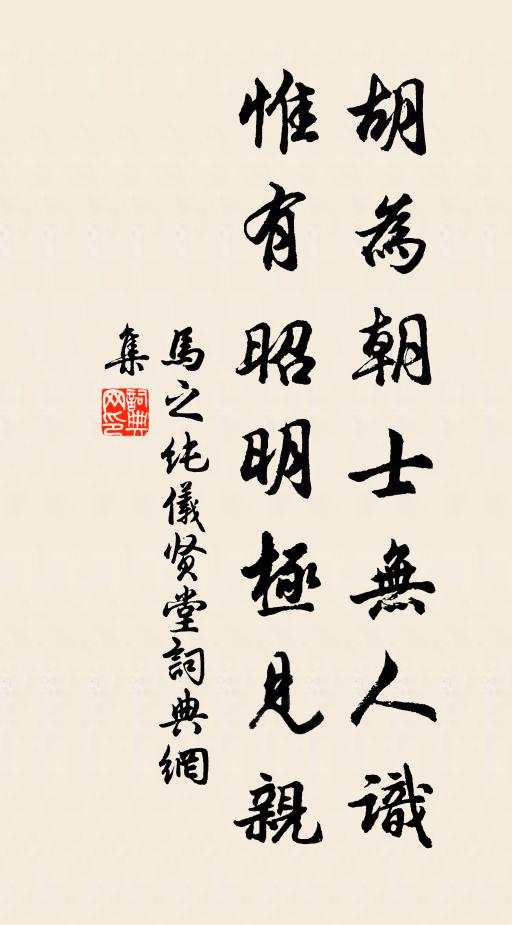 胡為朝士無人識
惟有昭明極見親
馬之純儀贤堂詞典網
集
詞典网印